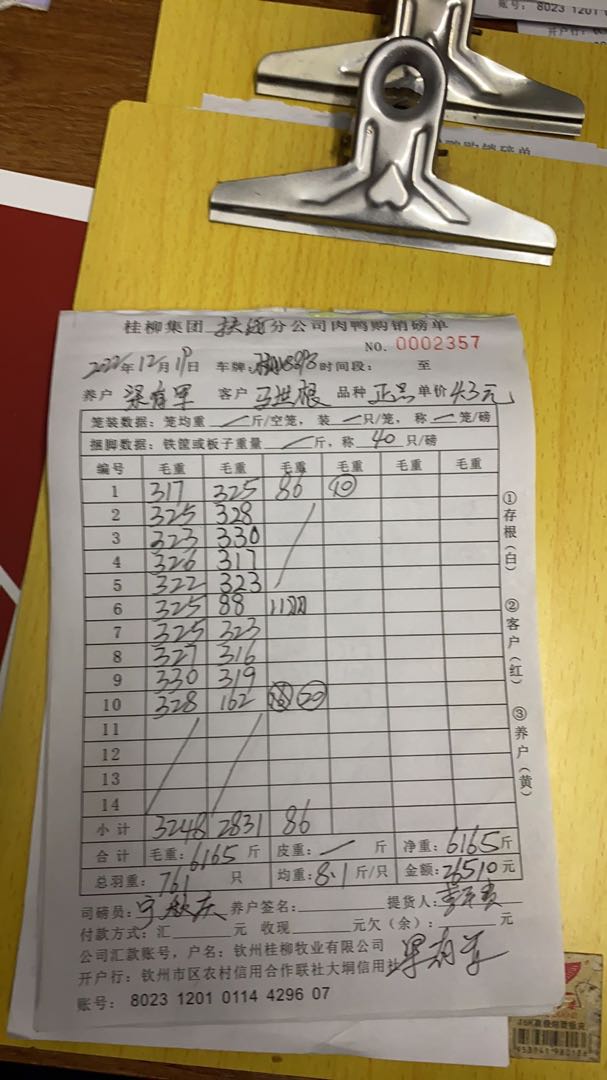 账号: 8023 1201
开户行:
鸭购销磅单
桂柳集团 分公司肉鸭购销磅单
NO. 0002357
2022年12月19日 车牌: 时间段: 至
养户 梁有军 客户 马世根 品种 正黑 单价 4.3元
笼装数据: 笼均重 斤/空笼, 装 只/笼, 称 笼/磅
捆脚数据: 铁筐或板子重量 斤, 称 40 只/磅
编号 毛重 毛重 毛重 毛重 毛重 毛重
1 317 325 86 10
2 325 328
3 323 330
4 326 317
5 322 323
6 325 88
7 325 323
8 327 316
9 330 319
10 328 162 20
11
12
13
14
小计 3248 2831 86
合计 毛重: 6165 斤 皮重: 斤 净重: 6165 斤
总羽重: 761 只 均重: 8.1 斤/只 金额: 26510 元
司磅员: 养户签名: 提货人:
付款方式: 汇 元 收现 元欠(余): 元
公司汇款账号, 户名: 钦州桂柳牧业有限公司
开户行: 钦州市区农村信用合作联社大垌信用社 梁有军
账号: 8023 1201 0114 4296 07
①存根(白)
②客户(红)
③养户(黄)